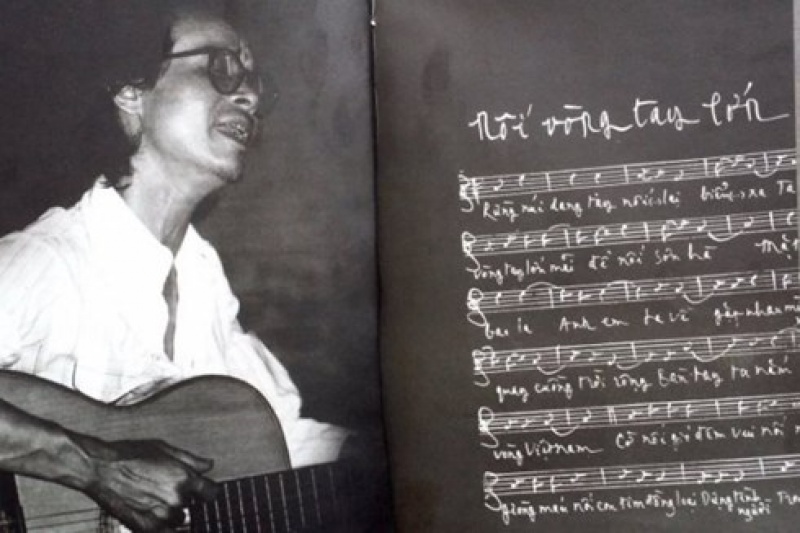 Nối vòng tay lớn
Rừng núi dang tay nối lại biển xa Ta
vòng tay lớn mãi để nối sơn hà Mặt
bao la Anh em ta về gặp nhau
quay cuồng trời rộng bàn tay ta nắm
vòng Việt nam Cờ nối gió đêm vui nối
giòng máu nối con tim đồng loại Dựng tình
người Tron